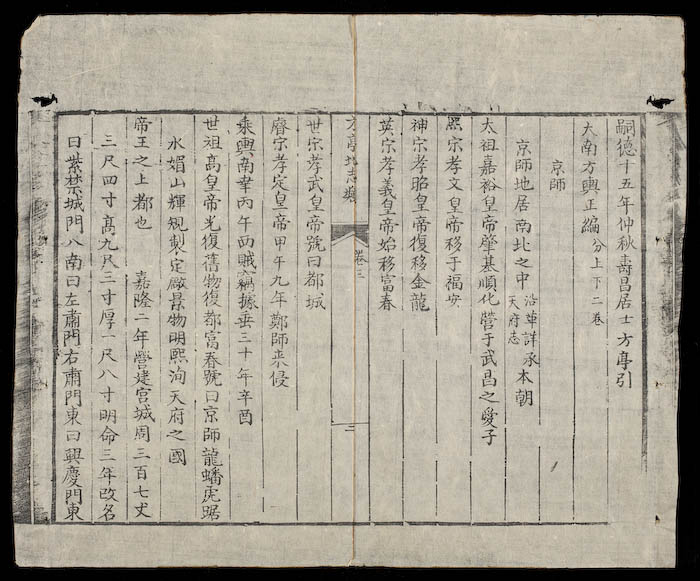 嗣德十五年仲秋壽昌居士方亭引
大南方輿正編 分上下二卷
京師
京師地居南北之中 沿革詳承天府志 本朝
太祖嘉裕皇帝肇基順化營于武昌之愛子
熙宗孝文皇帝移于福安
神宗孝昭皇帝復移金龍
英宗孝義皇帝始移富春
方亭地志類 卷三 三
世宗孝武皇帝號曰都城
睿宗孝定皇帝甲午九年鄭師來侵
乘輿南幸丙午西賊竊據垂三十年辛酉
世祖高皇帝光復舊物復都富春號曰京師龍蟠虎踞
水媚山輝規製定厥景物明熙洵天府之國
帝王之上都也 嘉隆二年營建宮城周三百七丈
三尺四寸高九尺二寸厚一尺八寸明命三年改名
曰紫禁城門八南曰左肅門右肅門東曰興慶門東